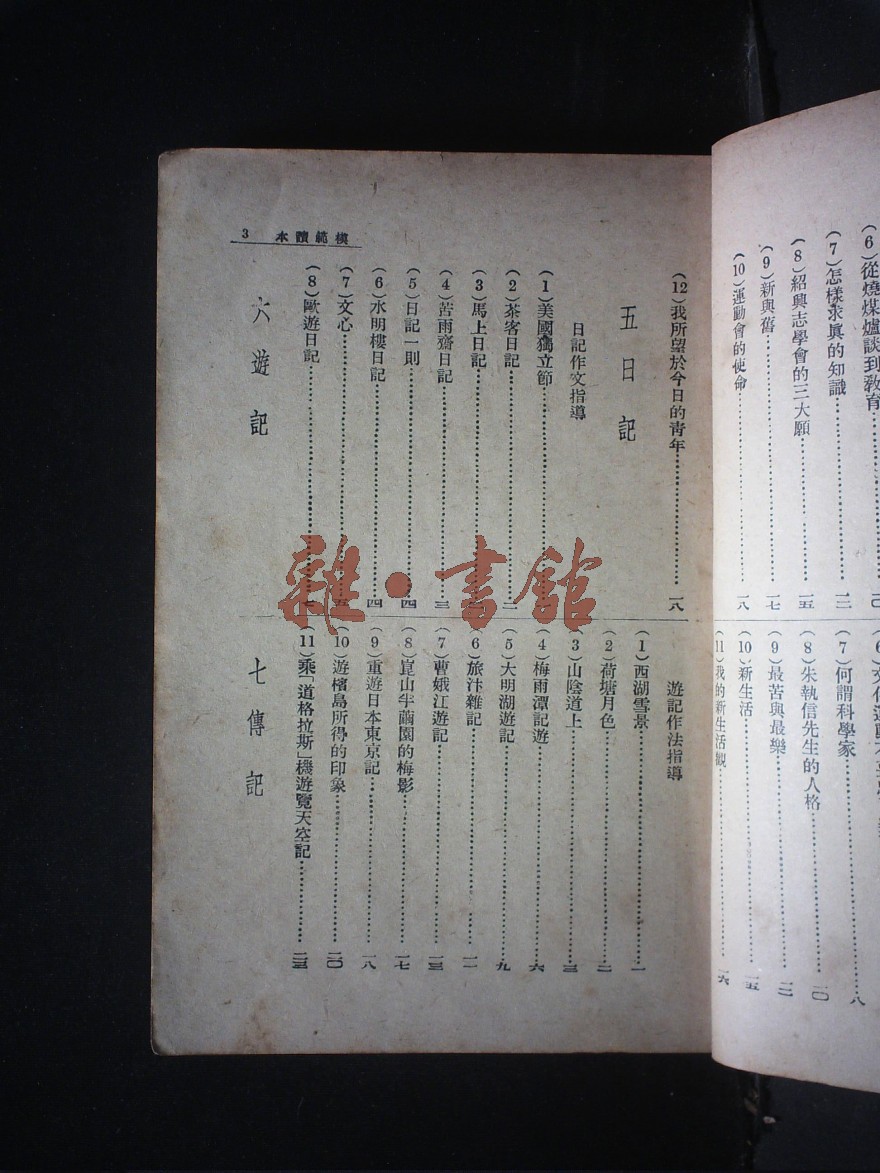 (6)從燒煤爐談到教育……二〇
(7)怎樣求眞的知識……一三
(8)紹興志學會的三大願……一五
(9)新與舊……一七
(10)運動會的使命……一八
(7)何謂科學家……八
(8)朱執信先生的人格……一〇
(9)最苦與最樂……一二
(10)新生活……一五
(11)我的新生活觀……一六
模範讀本 3
(12)我所望於今日的靑年……一八
五 日 記
日記作文指導
(1)美國獨立節
(2)茶客日記
(3)馬上日記
(4)苦雨齋日記……三
(5)日記一則……四
(6)水明樓日記……四
(7)文心……五
(8)歐遊日記
六 遊 記
遊記作法指導
(1)西湖雪景……一
(2)荷塘月色……二
(3)山陰道上……三
(4)梅雨潭記遊……六
(5)大明湖遊記……九
(6)旅汴雜記……一一
(7)曹娥江遊記……一三
(8)崑山半繭園的梅影……一七
(9)重遊日本東京記……一八
(10)遊檳島所得的印象……二〇
(11)乘「道格拉斯」機遊覽天空記……二三
七 傳 記
雜·書館